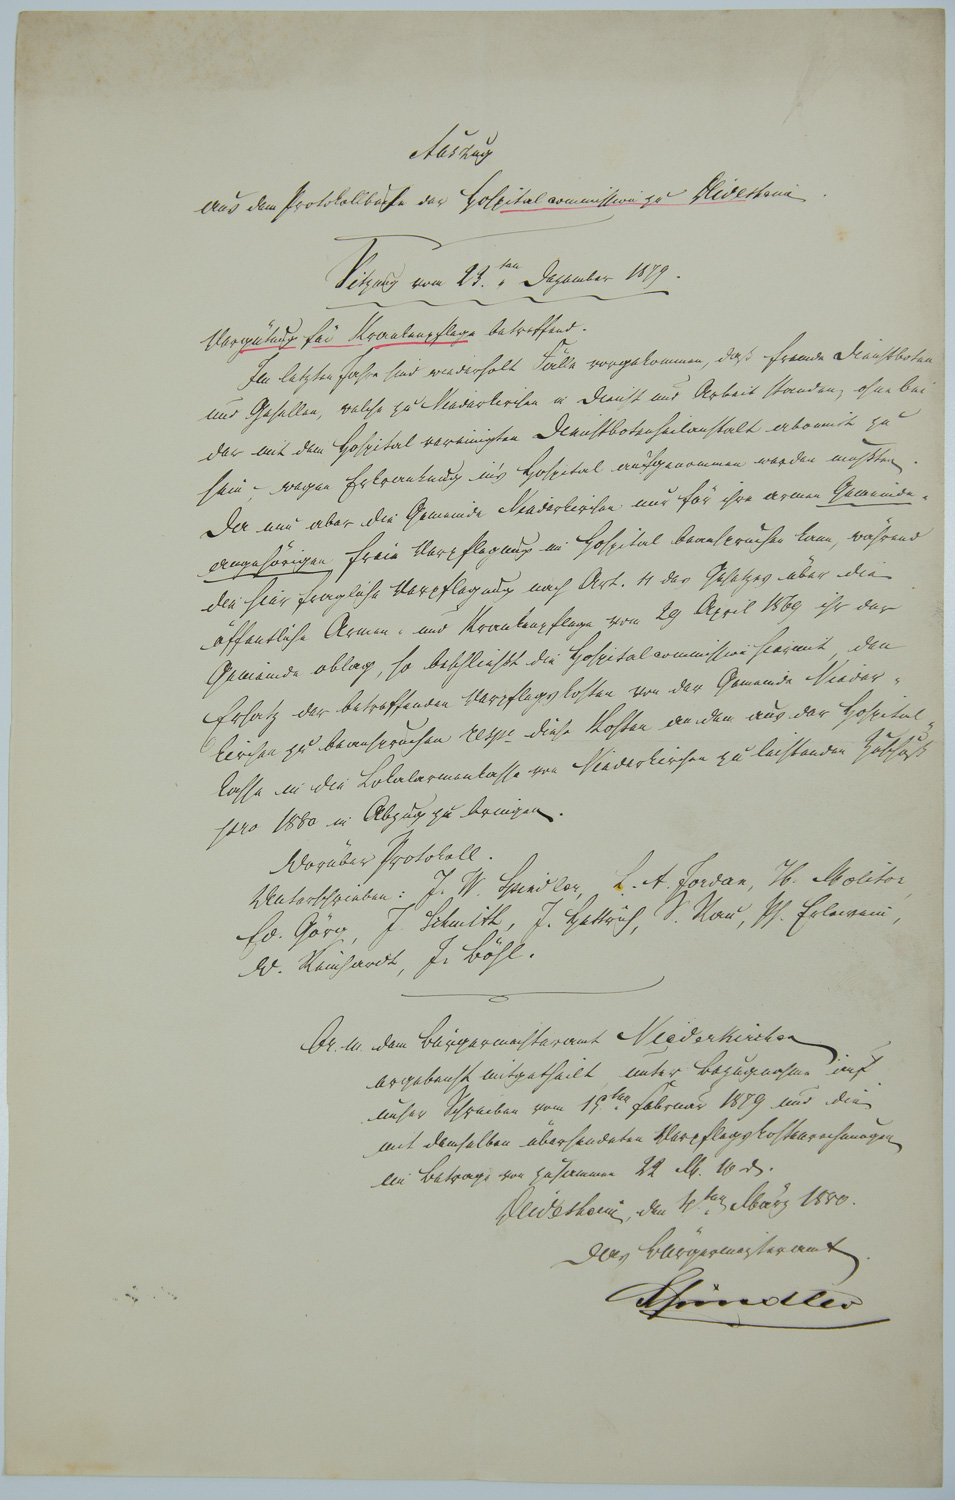 Auszug
aus dem Protokollbuche der Hospitalcommission zu Deidesheim.
Sitzung vom 23.ten Dezember 1879.
Vergütung für Krankenpflege betreffend.
Im letzten Jahre sind wiederholt Fälle vorgekommen, daß fremde Dienstboten
und Gesellen, welche zu Niederkirchen in Dienst und Arbeit standen, ohne bei
der mit dem Hospital vereinigten Dienstbotenheilanstalt abonnirt zu
sein, wegen Erkrankung in's Hospital aufgenommen werden mußten.
Da nun aber die Gemeinde Niederkirchen nur für ihre armen Gemeinde-
angehörigen freie Verpflegung im Hospital beanspruchen kann, während
die hier fragliche Verpflegung nach Art. 11 des Gesetzes über die
öffentliche Armen- und Krankenpflege vom 29 April 1869 ihr der
Gemeinde oblag, so beschließt die Hospitalcommission hiermit, den
Ersatz der betreffenden Verpflegskosten von der Gemeinde Nieder-
kirchen zu beanspruchen resp. diese Kosten an dem aus der Hospital-
kasse in die Lokalarmenkasse von Niederkirchen zu leistenden Zuschuß
pro 1880 in Abzug zu bringen.
Worüber Protokoll.
Unterschrieben: J. W. Spindler, L. A. Jordan, H. Molitor,
Ed. Görg, J. Schmith, J. Hettrich, S. Nau, Ph. Erlewein,
W. Reinhardt, J. Böhl.
Or. u. dem Bürgermeisteramt Niederkirchen
ergebenst mitgetheilt unter Bezugnahme auf
unser Schreiben vom 19ten Februar 1879 und die
mit demselben übersendeten Verpflegskostenrechnungen
im Betrage von zusammen 22 M. 10 d.
Deidesheim, den 4.ten März 1880.
Das Bürgermeisteramt
Spindler